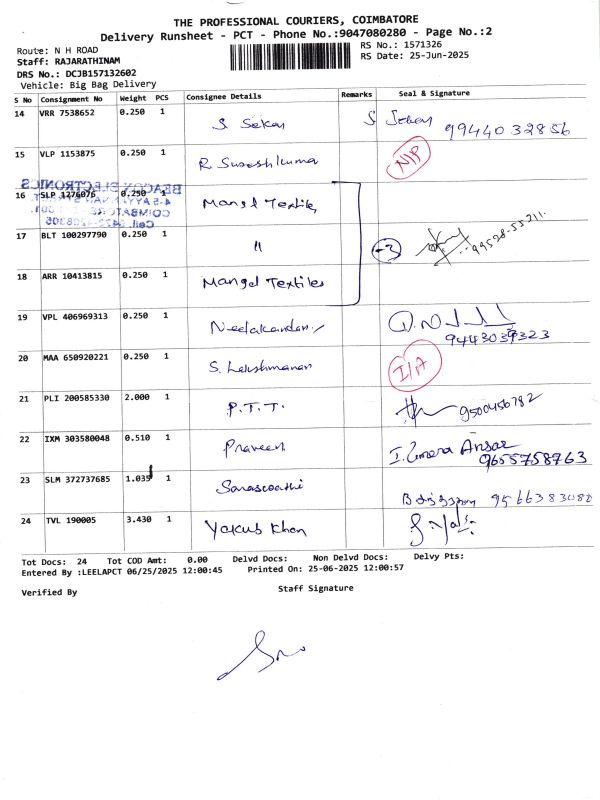 THE PROFESSIONAL COURIERS, COIMBATORE
Delivery Runsheet - PCT - Phone No.:9047080280 - Page No.:2
Route: N H ROAD
RS No.: 1571326
Staff: RAJARATHINAM
RS Date: 25-Jun-2025
DRS No.: DCJB157132602
Vehicle: Big Bag Delivery
S No Consignment No Weight PCS Consignee Details Remarks Seal & Signature
14 VRR 7538652 0.250 1 S. Sekar S Sekar 9944032856
15 VLP 1153875 0.250 1 R. Sureshkumar N/P
BEACON ELECTRONICS
16 SLP 1276076 0.250 1 Mangal Textiles
COIMBATORE
17 BLT 100297790 0.250 1 " -3 99528-55211
18 ARR 10413815 0.250 1 Mangal Textiles
19 VPL 406969313 0.250 1 Neelakandan
9443039323
20 MAA 650920221 0.250 1 S. Lakshmanan I/A
21 PLI 200585330 2.000 1 P.T.T. 9500456782
22 IXM 303580048 0.510 1 Praveen
9655758763
23 SLM 372737685 1.035 1 Saraswathi 9566383088
24 TVL 190005 3.430 1 Yakub Khan
Tot Docs: 24 Tot COD Amt: 0.00 Delvd Docs: Non Delvd Docs: Delvy Pts:
Entered By :LEELAPCT 06/25/2025 12:00:45 Printed On: 25-06-2025 12:00:57
Verified By Staff Signature